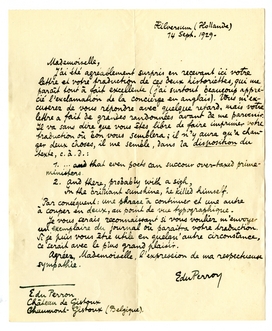 Hilversum (Hollande)
14 Sept. 1929.
Mademoiselle,
J'ai été agréablement surpris en recevant ici votre
lettre et votre traduction de ces deux historiettes, qui me
paraît tout à fait excellente (j'ai surtout beaucoup appré-
cié l'exclamation de la concierge en anglais). Vous m'ex-
cuserez de vous répondre avec quelque retard, mais votre
lettre a fait de grandes randonnées avant de me parvenir.
Je va sans dire que vous êtes libre de faire imprimer votre
traduction où bon vous semblera; il n'y aura qu'à chan-
ger deux choses, il me semble, dans la disposition du
texte, c.à.d.:
1. ... and that even poets can succour overtaxed prime-
ministers
2. And there, probably with a sigh,
in the critical dimness, he killed himself.
Par conséquent: une phrase à continuer et une autre
à couper en deux, au point de vue typographique.
Je vous serais reconnaissant si vous vouliez m'envoyer
un exemplaire du journal où paraîtra votre traduction.
Si je puis vous être utile en quelqu'autre circonstance,
ce serait avec le plus grand plaisir.
Agréez, Mademoiselle, l'expression de ma respectueuse
sympathie.
Edu Perron
Edu Perron.
Château de Gistoux
Chaumont-Gistoux (Belgique).